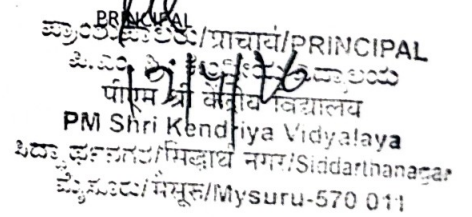 PRINCIPAL
ಪ್ರಾಂಶುಪಾಲರು/प्राचार्य/PRINCIPAL
ಪಿ.ಎಂ. ಶ್ರೀ ಕೇಂದ್ರೀಯ ವಿದ್ಯಾಲಯ
पीएम श्री केंद्रीय विद्यालय
PM Shri Kendriya Vidyalaya
ಸಿದ್ಧಾರ್ಥನಗರ/सिद्धार्थ नगर/Siddarthanagar
ಮೈಸೂರು/मैसूरू/Mysuru-570 011